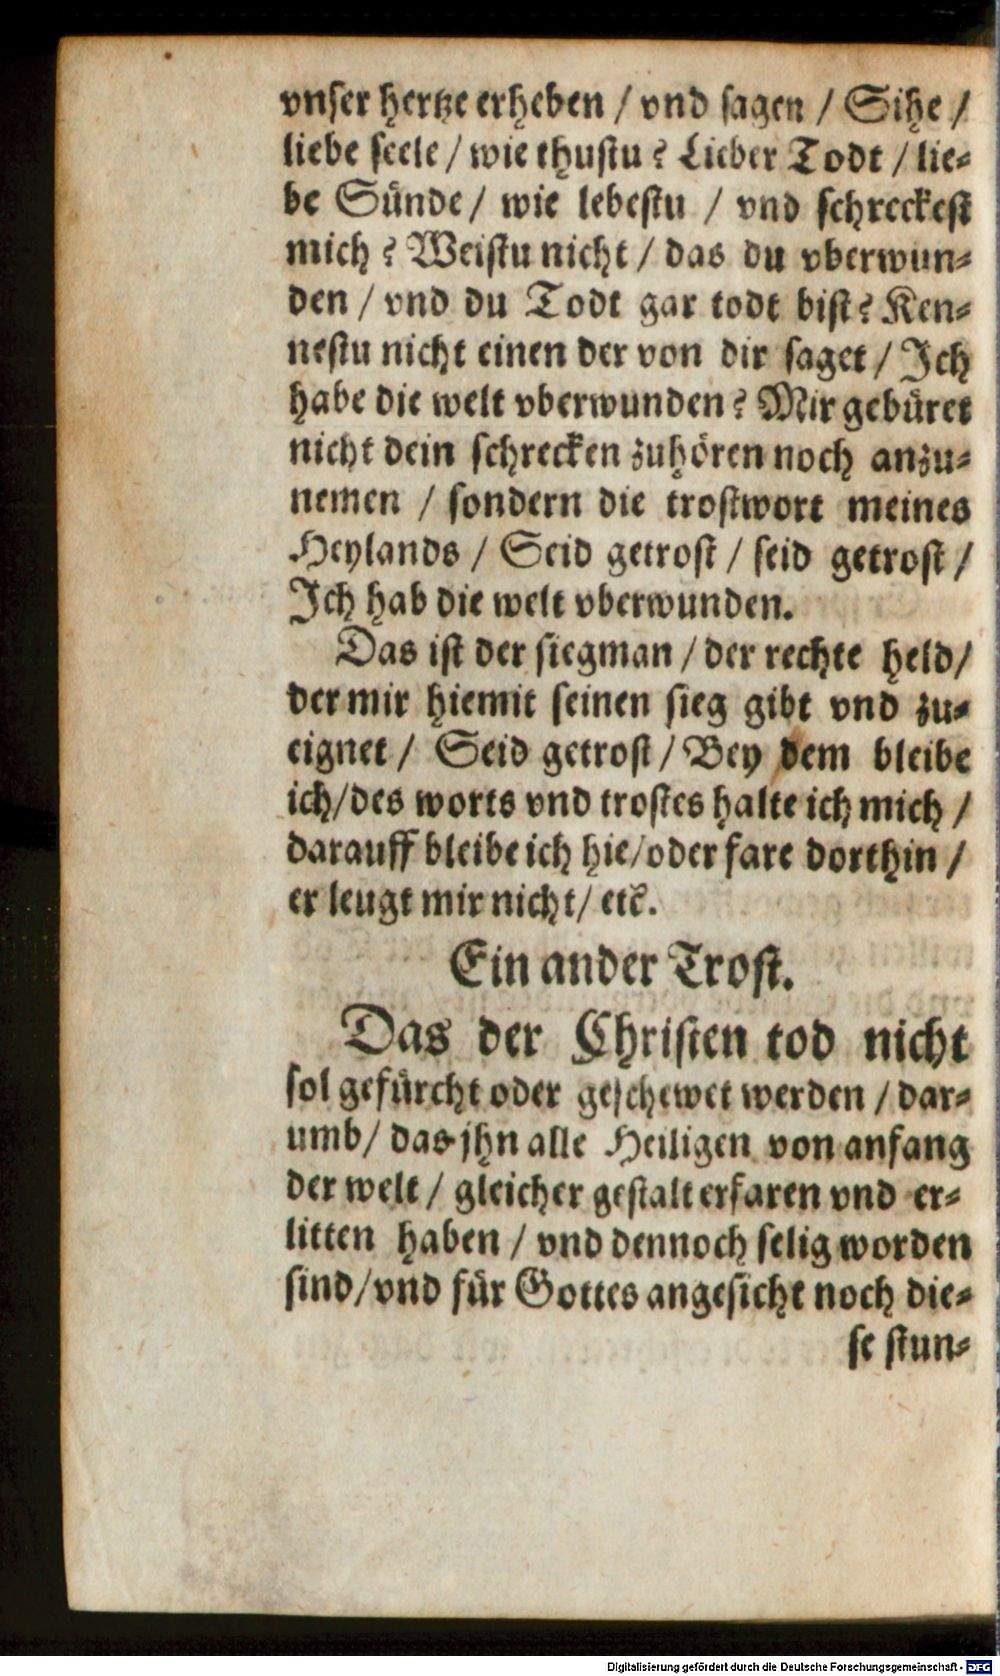 vnser hertze erheben / vnd sagen / Sihe /
liebe seele / wie thustu? Lieber Todt / lie-
be Sünde / wie lebestu / vnd schreckest
mich? Weistu nicht / das du vberwun-
den / vnd du Todt gar todt bist? Ken-
nestu nicht einen der von dir saget / Ich
habe die welt vberwunden? Mir gebüret
nicht dein schrecken zuhören noch anzu-
nemen / sondern die trostwort meines
Heylands / Seid getrost / seid getrost /
Ich hab die welt vberwunden.
Das ist der siegman / der rechte held /
der mir hiemit seinen sieg gibt vnd zu-
eignet / Seid getrost / Bey dem bleibe
ich / des worts vnd trostes halte ich mich /
darauff bleibe ich hie / oder fare dorthin /
er leugt mir nicht / etc.
Ein ander Trost.
Das der Christen tod nicht
sol gefürcht oder geschewet werden / dar-
umb / das jhn alle Heiligen von anfang
der welt / gleicher gestalt erfaren vnd er-
litten haben / vnd dennoch selig worden
sind / vnd für Gottes angesicht noch die-
se stun-
Digitalisierung gefördert durch die Deutsche Forschungsgemeinschaft - DFG